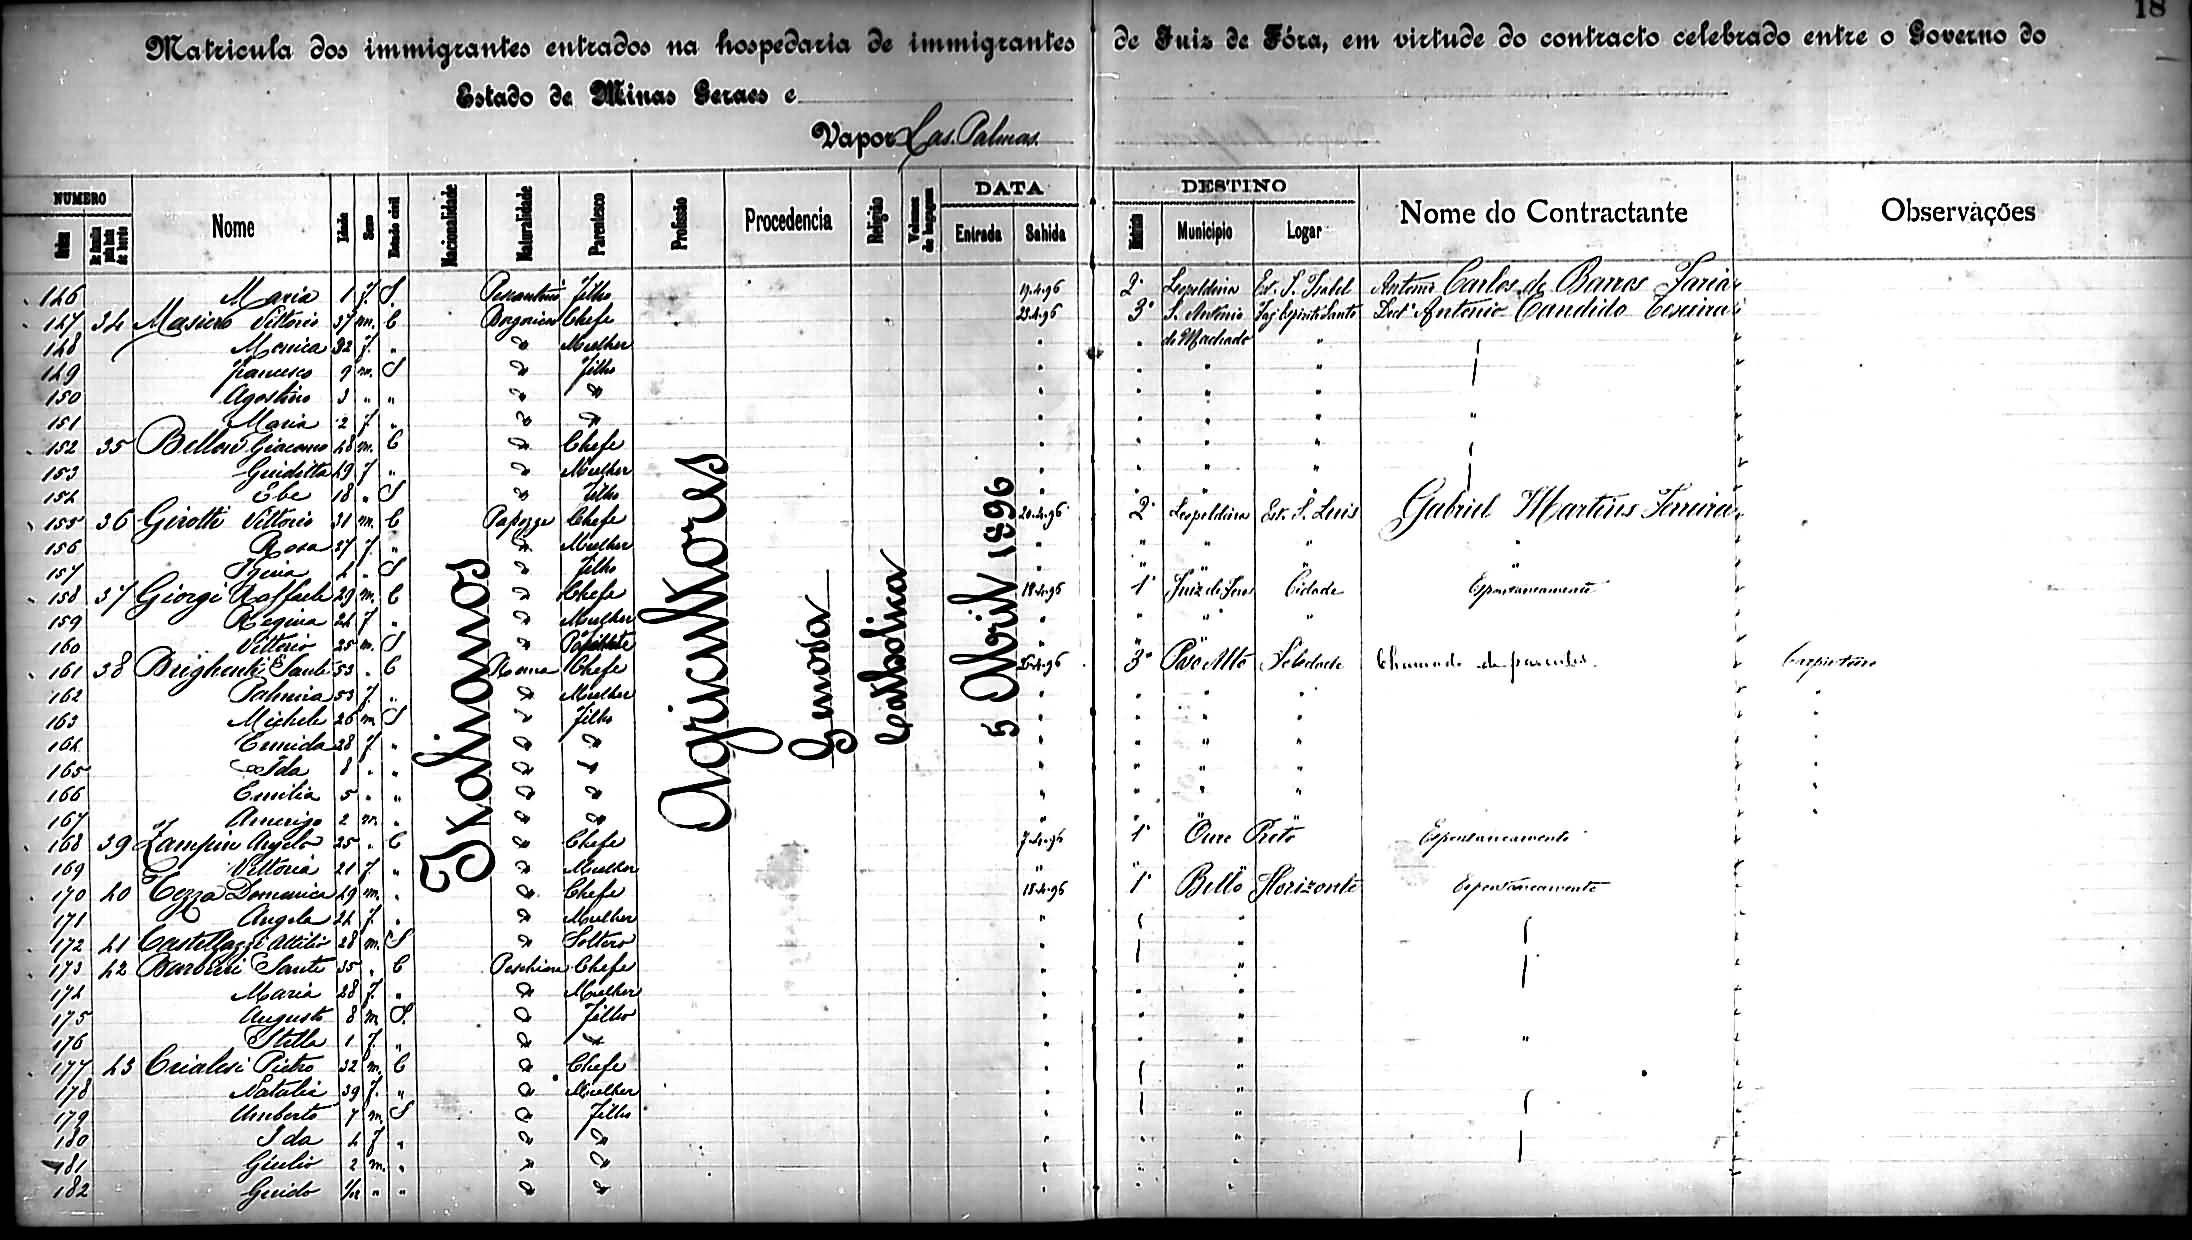 18
Matricula dos immigrantes entrados na hospedaria de immigrantes de Juiz de Fóra, em virtude do contracto celebrado entre o Governo do
Estado de Minas Geraes e
Vapor Las Palmas.
NUMERO DATA DESTINO
Ordem De familia pela lista de bordo Nome Idade Sexo Estado civil Nacionalidade Naturalidade Parentesco Profissão Procedencia Religião Volumes de bagagem Entrada Sahida Districto Municipio Logar Nome do Contractante Observações
Italianos
Agricultores
Genova
Catholica
5 Abril 1896
146 Maria 1 f. S. Filho 19.4.96 2º Leopoldina Est. S. Isabel Antonio Carlos de Barros Faria
147 34 Masiero Vittorio 37 m. C Chefe 23.4.96 3º S. Antonio Faz Espirito Santo Antonio Candido Teixeira
148 Monica 32 f. " " Mulher " " do Machado "
149 Francesco 9 m. S " Filho " " " "
150 Agostino 3 " " " " " " " "
151 Maria 2 f " " " " " " " "
152 35 Giacomo 48 m. C " Chefe " " " "
153 Giuditta 49 f " " Mulher " " " "
154 Ebe 18 " S " Filho " " " "
155 36 Girotti Vittorio 31 m. C Papozze Chefe 20.4.96 2º Leopoldina Est. S. Luis Gabriel Martins Ferreira
156 Rosa 37 f " " Mulher " " " " "
157 4 " S " Filho " " " " "
158 37 Giorgi Raffaele 29 m. C " Chefe 18.4.96 1º Juiz de Fora Cidade Espontaneamente
159 Regina 24 f " " Mulher " " " "
160 Vittorio 25 m. S " "
161 38 Brighenti Sante 53 " C Roma Chefe 25.4.96 3º Pouso Alto Soledade Chamado de parentes. Carpinteiro
162 Palmira 53 f. " " Mulher " " " " "
163 Michele 26 m S " Filho " " " " "
164 28 f. " " " " " " " "
165 Ida 8 " " " " " " " " "
166 Emilia 5 " " " " " " " " "
167 Amerigo 2 m. " " " " " " " "
168 39 Zampin Angelo 25 " C " Chefe 7.4.96 1º Ouro Preto Espontaneamente
169 Vittoria 21 f. " " Mulher " "
170 40 Tezza Domenico 49 m. " " Chefe 18.4.96 1º Bello Horizonte Espontaneamente
171 Angela 24 f. " " Mulher " "
172 41 Castellazzi Attilio 28 m. S " Solteiro " "
173 42 Barbieri Sante 35 " C Peschiera Chefe " "
174 Maria 28 f. " " Mulher " " "
175 Augusto 8 m. S. " Filho " " "
176 Stella 1 f. " " " " " " "
177 43 Crialesi Pietro 32 m. C " Chefe " "
178 Natalia 39 f. " " Mulher " "
179 Umberto 7 m. S " Filho " "
180 Ida 4 f " " " " " "
181 Giulio 2 m. " " " " " "
182 Guido 1/12 " " " " " " "